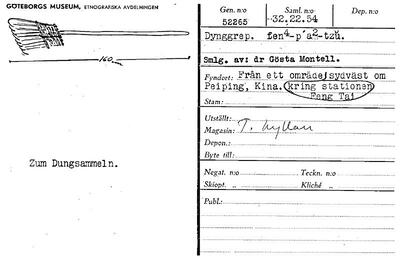 GÖTEBORGS MUSEUM, ETNOGRAFISKA AVDELNINGEN
160
Zum Dungsammeln.
Gen. n:o Saml. n:o Dep. n:o
52265 32.22.54
Dynggrep. fen4-p'a2-tzŭ.
Smlg. av: dr Gösta Montell.
Fyndort: Från ett område sydväst om
Peiping, Kina. (kring stationen
Stam: Feng Tai
Utställt:
Magasin: T. hyllan
Depon.:
Byte till:
Negat. n:o Teckn. n:o
Skiopt. „ Kliché „
Publ.: